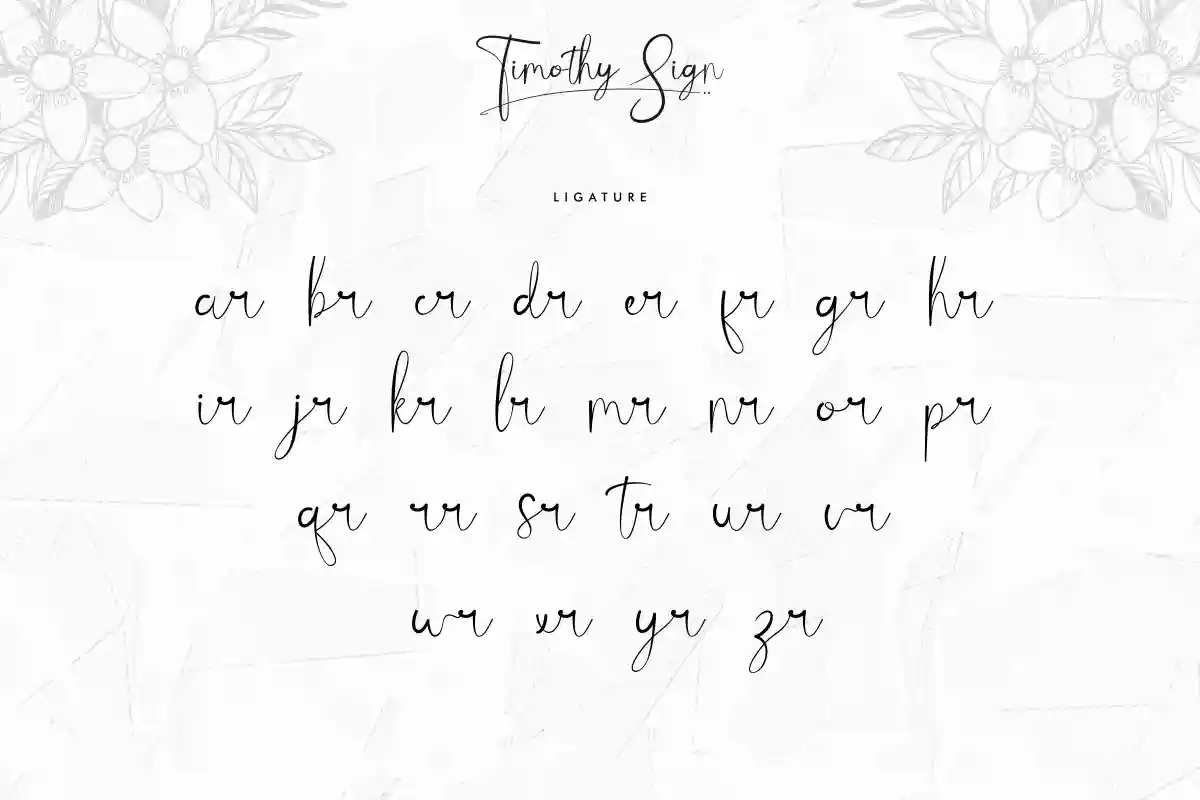 Timothy Sign
LIGATURE
ar br cr dr er fr gr hr
ir jr kr lr mr nr or pr
qr rr sr tr ur vr
wr xr yr zr